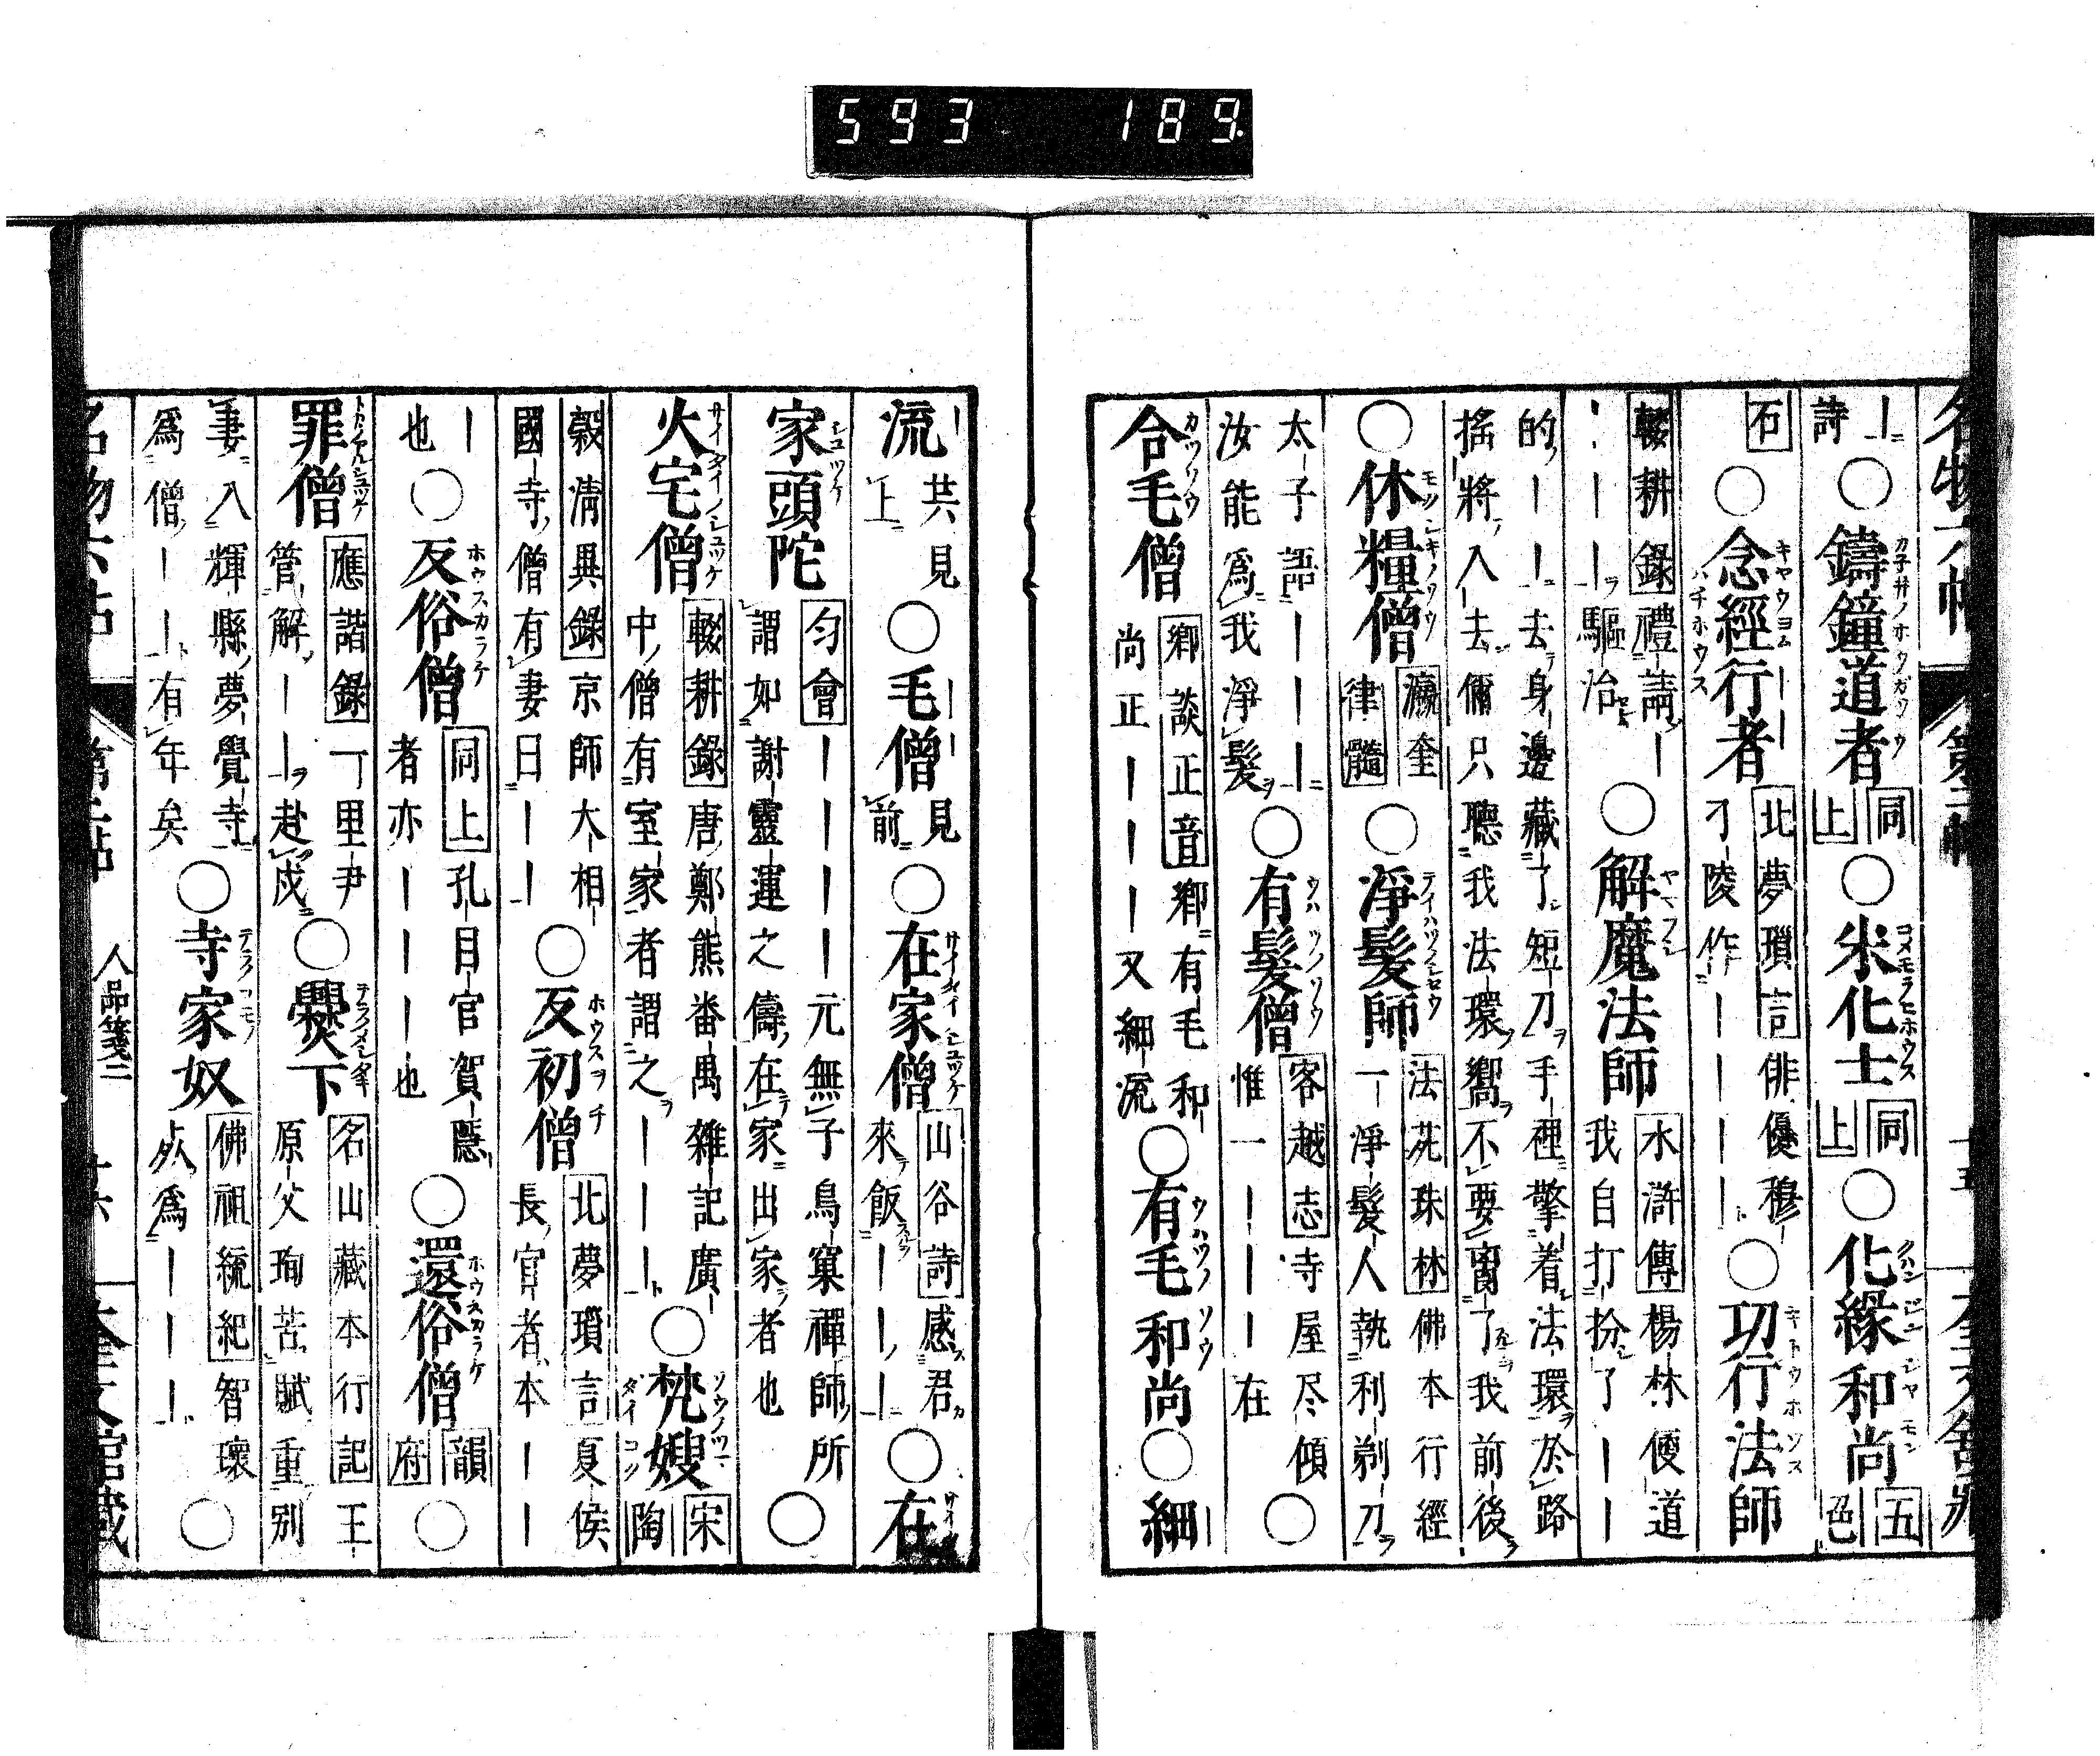 593 189
｜詩○鑄鐘道者同上○米化士同上○化緣和尚五色
石○念經行者北夢瑣言俳優穆刁陵作｜｜｜｜○功行法師
輟耕錄禮請｜｜｜｜驅治○解魔法師水滸傳楊林便道我自打扮了｜｜
的｜｜去身邊藏了短刀手裡擎着法環於路搖將入去你只聽我法環嚮不要离了我前後
○休糧僧瀛奎律髓○淨髮師法苑珠林佛本行經一淨髮人執利剃刀
太子語｜｜｜汝能為我淨髮○有髮僧客越志寺屋尽傾惟一｜｜｜在○
合毛僧鄉談正音鄉有毛和尚正｜｜｜｜又細流○有毛和尚○細
流共見上○毛僧見前○在家僧山谷詩感君來飯｜｜｜○在
家頭陀匀會｜｜｜｜元無子鳥窠禪師所謂如謝靈運之儔在家出家者也○
火宅僧輟耕錄唐鄭熊番禺雜記廣中僧有室家者謂之｜｜｜○梵嫂宋陶
穀清異錄京師大相國寺僧有妻曰｜｜○反初僧北夢瑣言夏侯長官者本｜｜
｜也○反俗僧同上孔目官賀隱者亦｜｜｜也○還俗僧韻府○
罪僧應諧錄一里尹管解｜｜赴戍○爨下名山藏本行記王原父珣苦賦重別
妻入輝縣夢覺寺為僧｜｜｜有年矣○寺家奴佛祖統紀智瓌為｜｜｜○
人品箋二